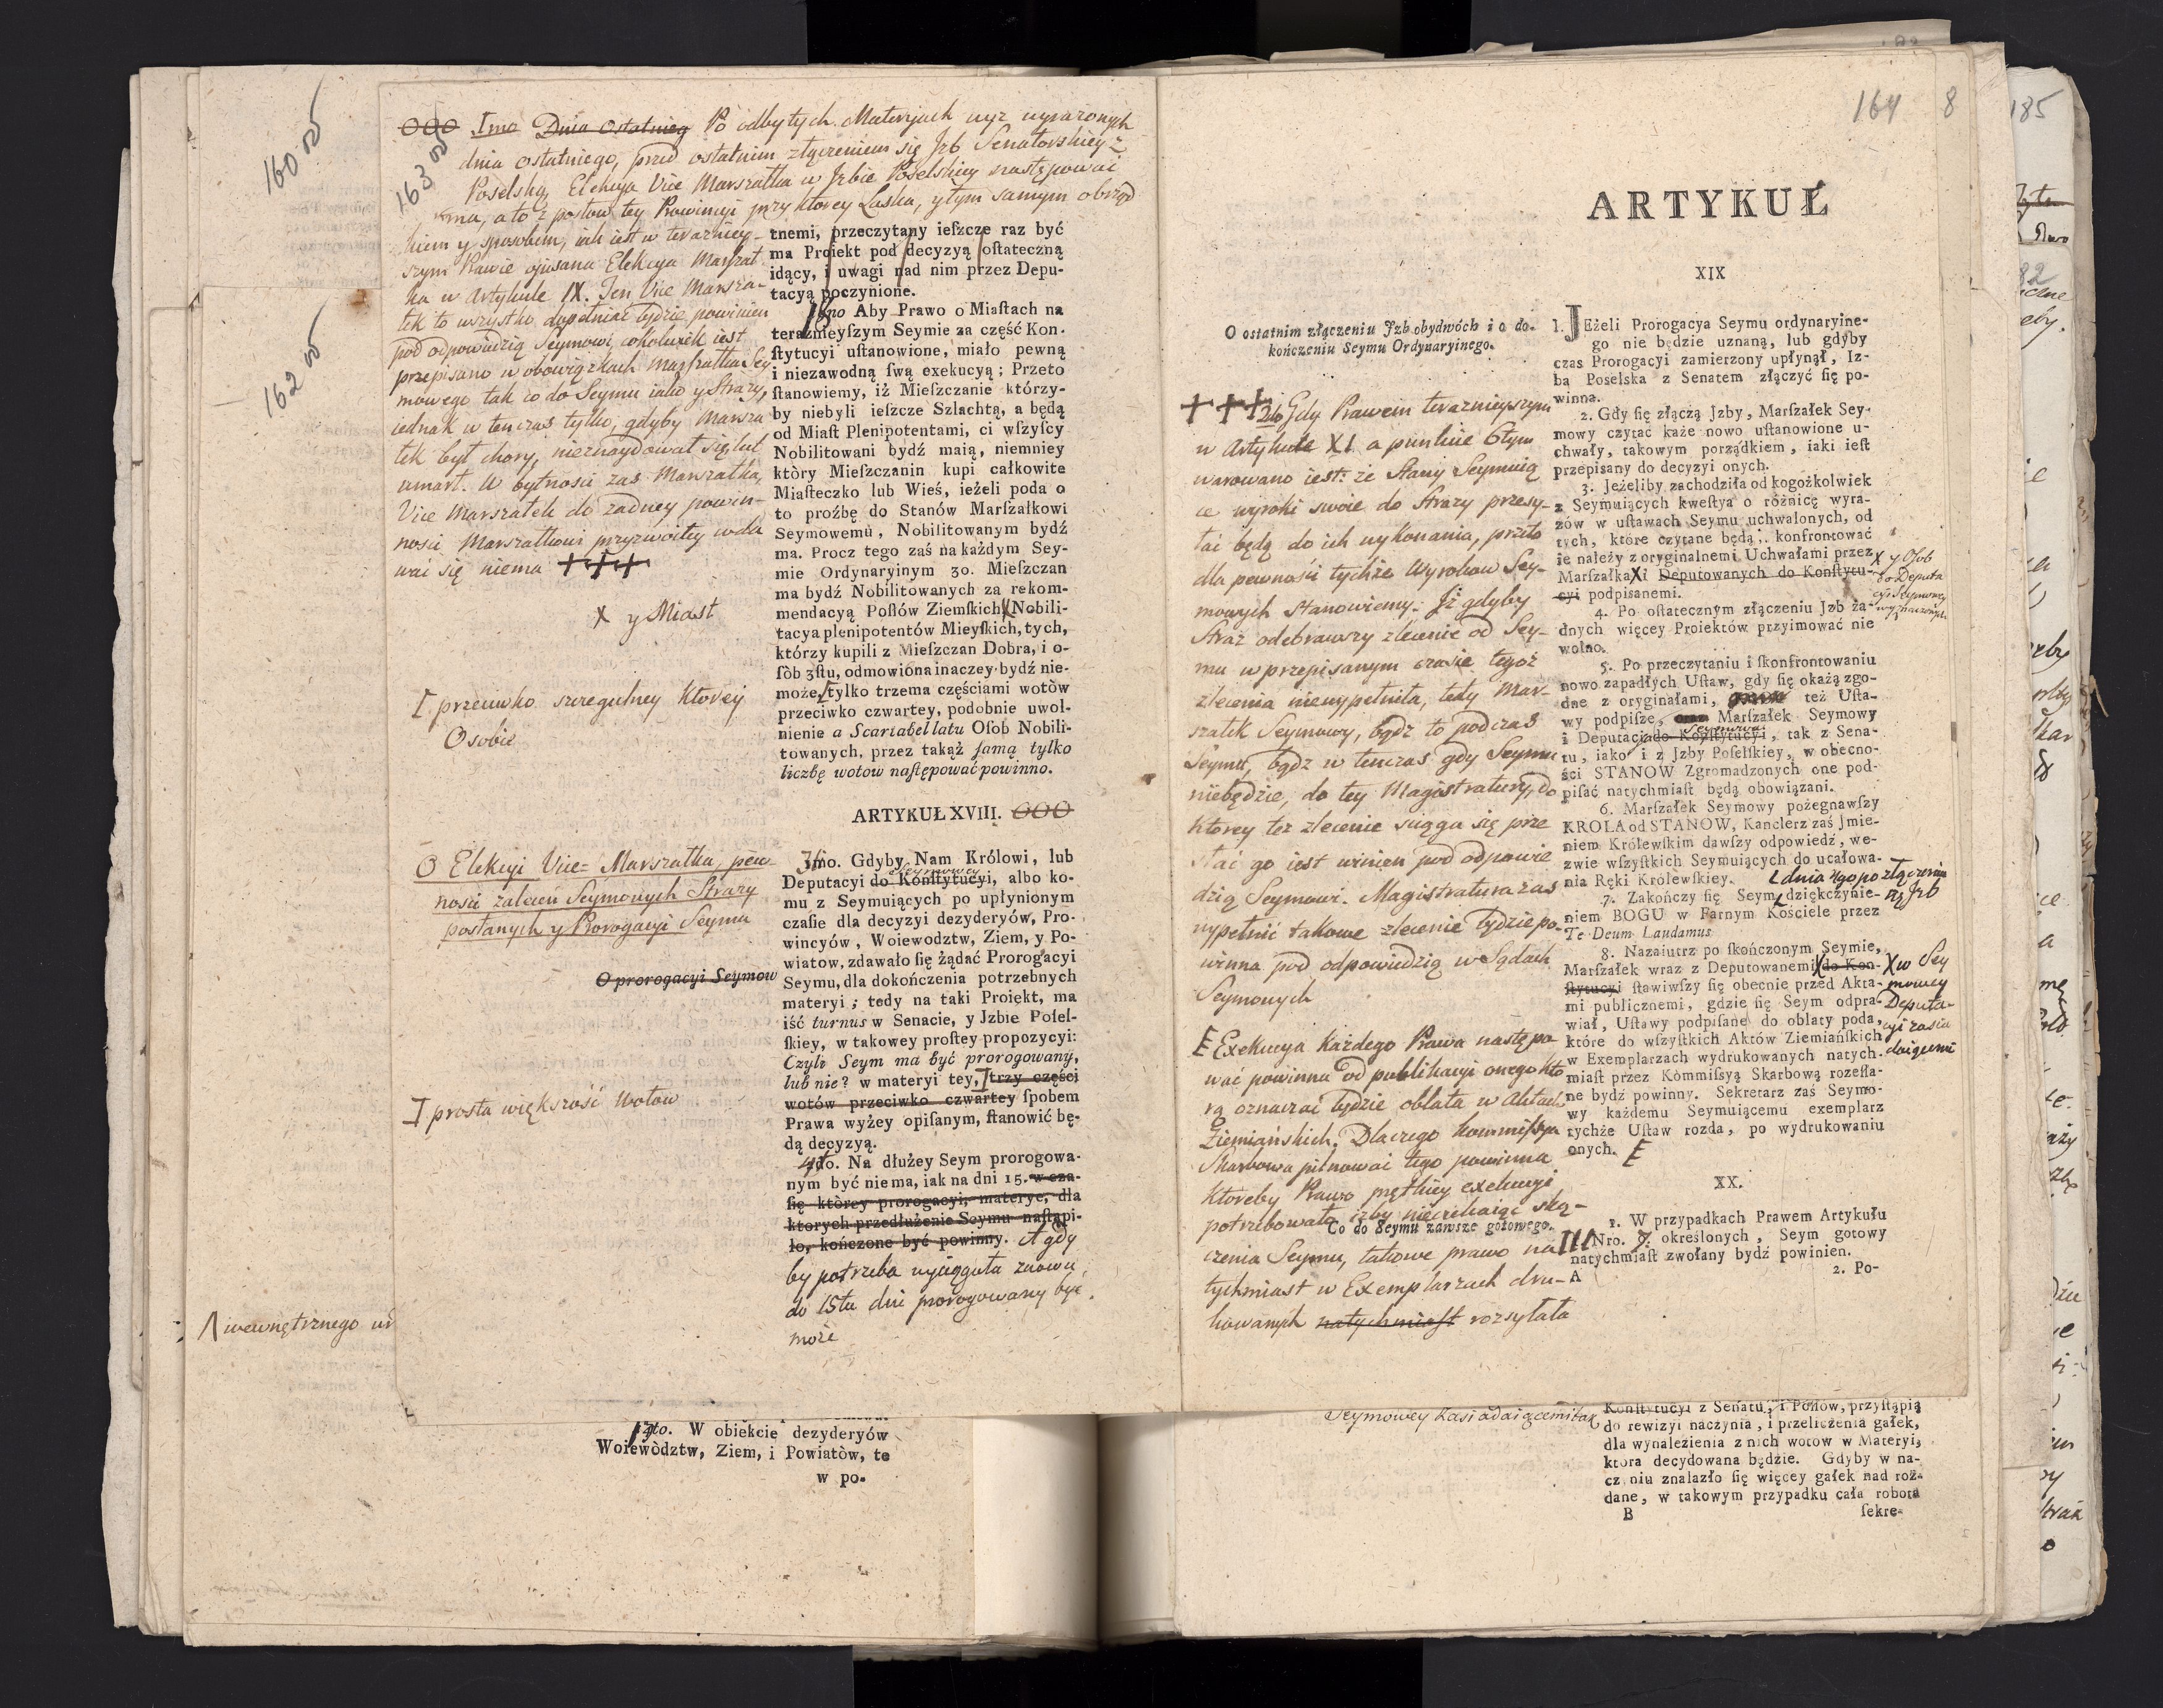 160 v
163 v
162 v
000 Imo Dnia Ostatnieg Po odbytych Materyach wyż wyrażonych
dnia ostatniego, przed ostatnim złączeniem się Jzb Senatorskiey z
Poselską, Elekcya Vice Marszałka w Jzbie Poselskiey następować
ma, a to z posłow tey Prowincyi przy ktorey Laska, y tym samym obrząd
kiem y sposobem, iak iest w teraźniey-
szym Prawie opisana Elekcya Marszał
ka w Artykule IX. Ten Vice Marsza-
łek to wszystko dopełniać będzie powinien
pod odpowiedzią Seymowi, cokolwiek iest
przepisano w obowiązkach Marszałka Sey
mowego tak co do Seymu iako y Straży,
iednak w ten czas tylko, gdyby Marsza
łek był chory, nieznaydował się, lub
umarł. W bytności zaś Marszałka,
Vice Marszałek do żadney powin-
ności Marszałkowi przyzwoitey wda
wać się niema +++
X y Miast
I przeciwko szczegulney ktorey
Osobie
O Elekcyi Vice-Marszałka, pew-
ności zaleceń Seymowych Straży
posłanych y Prorogacyi Seymu
O prorogacyi Seymow
I prosta większość wotow
/\ wewnętrznego
tnemi, przeczytany ieſzcze raz być
ma Proiekt pod decyzyą oſtateczną
idący, i uwagi nad nim przez Depu-
tacyą poczynione.
no Aby Prawo o Miaſtach na
teraźnieyſzym Seymie za część Kon-
ſtytucyi uſtanowione, miało pewną
i niezawodną ſwą exekucyą; Przeto
ſtanowiemy, iż Mieſzczanie którzy-
by niebyli ieſzcze Szlachtą, a będą
od Miaſt Plenipotentami, ci wſzyſcy
Nobilitowani bydź maią, niemniey
który Mieſzczanin kupi całkowite
Miaſteczko lub Wieś, ieżeli poda o
to proźbę do Stanów Marſzałkowi
Seymowemu, Nobilitowanym bydź
ma. Procz tego zaś na każdym Sey-
mie Ordynaryinym 30. Mieſzczan
ma bydź Nobilitowanych za rekom-
mendacyą Poſłów Ziemſkich X Nobili-
tacya plenipotentów Mieyſkich, tych,
którzy kupili z Mieſzczan Dobra, i o-
ſób 3ſtu, odmowiona inaczey bydź nie-
może, I tylko trzema częściami wotòw
przeciwko czwartey, podobnie uwol-
nienie a Scartabellatu Oſob Nobili-
towanych, przez takąż ſamą tylko
liczbę wotow następować powinno.
ARTYKUŁ XVIII. 000
3tio. Gdyby Nam Królowi, lub
Seymowey
Deputacyi do Konſtytucyi, albo ko-
mu z Seymuiących po upłynionym
czaſie dla decyzyi dezyderyów, Pro-
wincyów, Woiewodztw, Ziem, y Po-
wiatow, zdawało ſię żądać Prorogacyi
Seymu, dla dokończenia potrzebnych
materyi; tedy na taki Proiekt, ma
iść turnus w Senacie, y Jzbie Poſel-
ſkiey, w takowey proſtey propozycyi:
Czyli Seym ma być prorogowany,
lub nie? w materyi tey, I trzy części
wotów przeciwko czwartey ſpobem
Prawa wyżey opiſanym, ſtanowić bę-
dą decyzyą.
4to. Na dłużey Seym prorogowa-
nym być nie ma, iak na dni 15. w cza-
ſię którey prorogacyi, materye, dla
ktorych przedłużenie Seymu naſtąpi-
ło, kończone być powinny. A gdy
by potrzeba wyciągnęła znowu
do 15tu dni prorogowany być
może
7to. W obiekcie dezyderyów
Woiewòdztw, Ziem, i Powiatòw, te
w po-
164 8
ARTYKUŁ
XIX
O ostatnim złączeniu Jzb obydwóch i o do-
kończeniu Seymu Ordynaryinego.
+++ 2do Gdy Prawem teraznieyszym
w Artykule XI a punkcie 6tym
warowano iest: że Stany Seymuią
ce wyroki swoie do Straży przesy-
łać będą do ich wykonania, przeto
dla pewności tychże Wyrokow Sey-
mowych stanowiemy. Jż gdyby
Straż odebrawszy zlecenie od Sey-
mu w przepisanym czasie tegoż
zlecenia niewypełniła, tedy Mar-
szałek Seymowy, bądź to podczas
Seymu, bądź w tenczas gdy Seymu
niebędzie, do tey Magistratury, do
ktorey też zlecenie sciąga się prze
słać go iest winien pod odpowie
dzią Seymowi. Magistratura zaś
wypełnić takowe zlecenie będzie po-
winna pod odpowiedzią w Sądach
Seymowych
E Exekucya każdego Prawa następo
wać powinna od publikacyi onego kto
rą oznaczać będzie oblata w Aktach
Ziemiańskich. Dlaczego Kommissya
Skarbowa pilnować tego powinna
ktoreby Prawo prętkiey exekucyi
potrzebowało iżby nieczekaiąc skoń-
czenia Seymu, takowe prawo na
tychmiast w Exemplarzach dru-
kowanych natychmiast rozsyłała
1. JEżeli Prorogacya Seymu ordynaryine-
go nie będzie uznaną, lub gdyby
czas Prorogacyi zamierzony upłynął, Iz-
ba Poselska z Senatem złączyć ſię po-
winna.
2. Gdy ſię złączą Jzby, Marſzałek Sey-
mowy czytać każe nowo uſtanowione u-
chwały, takowym porządkiem, iaki ieſt
przepisany do decyzyi onych.
3. Jeżeliby zachodziła od kogożkolwiek
z Seymuiących kweſtya o różnicę wyra-
zów w uſtawach Seymu uchwalonych, od
tych, które czytane będą; konfrontować
ie należy z oryginalnemi Uchwałami przez
Marſzałka X i Deputowanych do Konſtytu-
cyi podpisanemi.
X y Osob
do Deputa
cyi Seymowey
wyznaczonych
4. Po oſtatecznym złączeniu Jzb ża-
dnych więcey Proiektów przyimować nie
wolno.
5. Po przeczytaniu i ſkonfrontowaniu
nowo zapadłych Uſtaw, gdy ſię okażą zgo-
dne z oryginałami, też Uſta-
wy podpiſze, Marſzałek Seymowy
Seymowa
i Deputacia do Konſtytucyi, tak z Sena-
tu, iako i z Jzby Poſelſkiey, w obecno-
ści STANOW Zgromadzonych one pod-
pisać natychmiaſt będą obowiązani.
6. Marſzałek Seymowy pożegnawſzy
KROLA od STANOW, Kanclerz zaś Jmie-
niem Królewſkim dawſzy odpowiedź, we-
zwie wſzyſtkich Seymuiących do ucałowa-
nia Ręki Królewſkiey.
L dnia 4go po złączeniu
się Jzb
7. Zakończy ſię Seym dziękczynie-
niem BOGU w Farnym Kościele przez
Te Deum Laudamus
8. Nazaiutrz po ſkończonym Seymie,
Marſzałek wraz z Deputowanemi X do Kon-
ſtytucyi ſtawiwſzy ſię obecnie przed Akta-
mi publicznemi, gdzie ſię Seym odpra-
wiał, Uſtawy podpiſane do oblaty poda,
które do wſzyſtkich Aktów Ziemiańſkich
w Exemplarzach wydrukowanych natych-
miaſt przez Kòmmiſsyą Skarbową rozeſła-
ne bydź powinny. Sekretarz zaś Seymo-
wy każdemu Seymuiącemu exemplarz
tychże Uſtaw rozda, po wydrukowaniu
onych. E
X w Sey
mowey
Deputa-
cyi zasia
daiącemi
XX.
Co do Seymu zawsze gotowego.
1. W przypadkach Prawem Artykułu
III Nro. 7. okreslonych, Seym gotowy
natychmiaſt zwołany bydź powinien.
A
2. Po-
Seymowey zasiadaiącemi
Konſtytucyi z Senatu, i Poſłow, przyſtąpią
do rewizyi naczynia, i przeliczenia gałek,
dla wynalezienia z nich wotow w Materyi,
ktora decydowana będzie. Gdyby w na-
cz niu znalazło ſię więcey gałek nad roz-
dane, w takowym przypadku cała robota
B
ſekre-
185